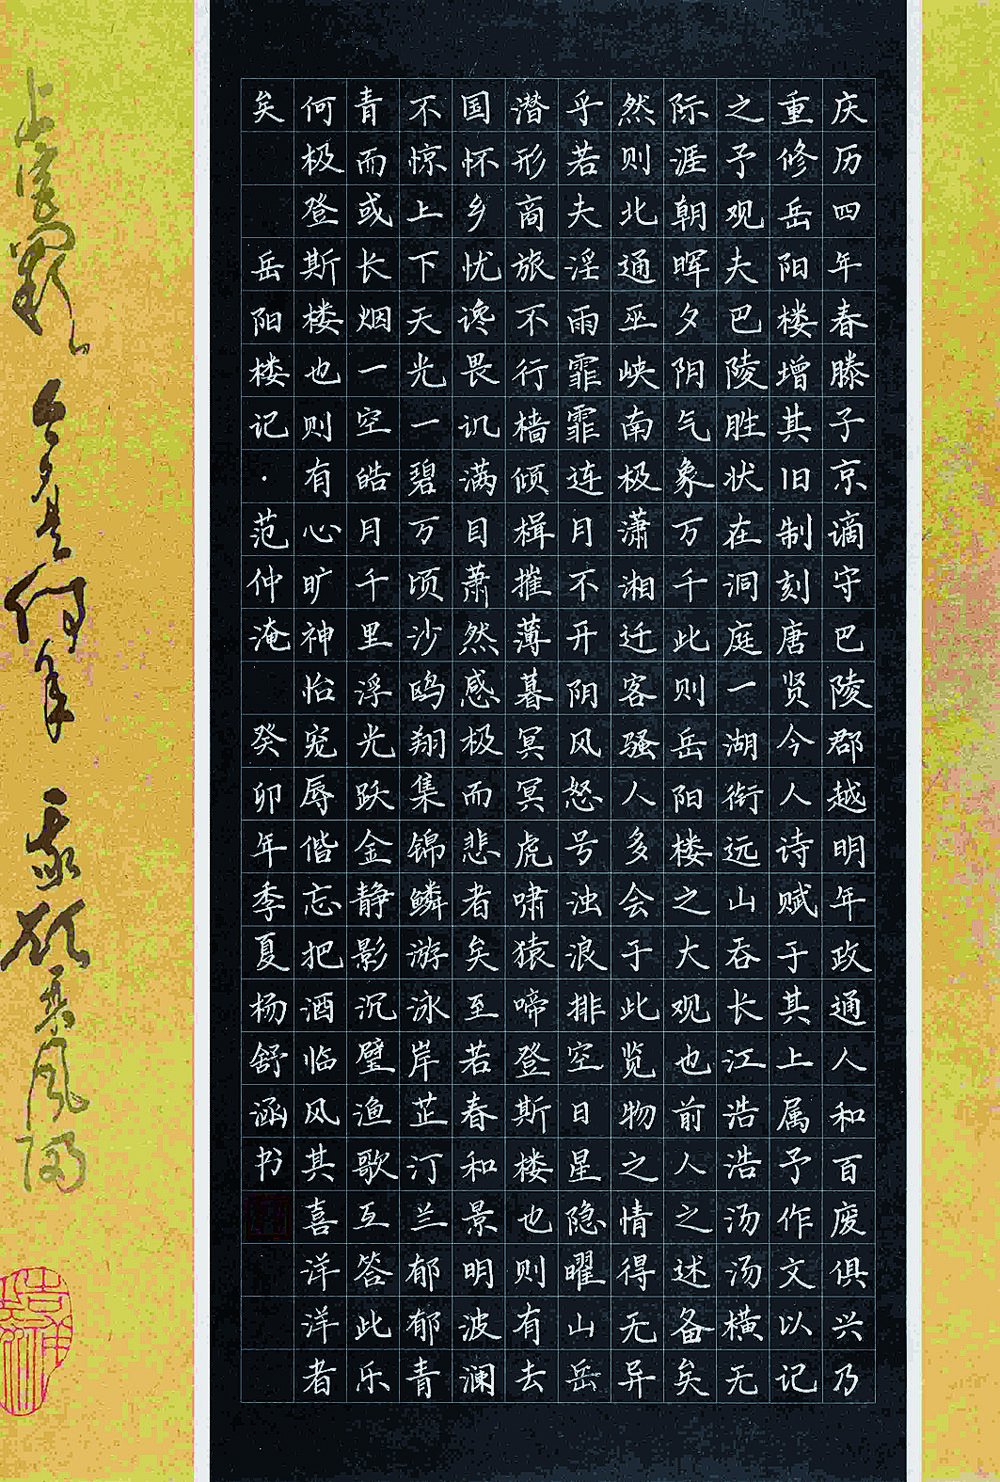 庆历四年春滕子京谪守巴陵郡越明年政通人和百废俱兴乃
重修岳阳楼增其旧制刻唐贤今人诗赋于其上属予作文以记
之予观夫巴陵胜状在洞庭一湖衔远山吞长江浩浩汤汤横无
际涯朝晖夕阴气象万千此则岳阳楼之大观也前人之述备矣
然则北通巫峡南极潇湘迁客骚人多会于此览物之情得无异
乎若夫淫雨霏霏连月不开阴风怒号浊浪排空日星隐曜山岳
潜形商旅不行樯倾楫摧薄暮冥冥虎啸猿啼登斯楼也则有去
国怀乡忧谗畏讥满目萧然感极而悲者矣至若春和景明波澜
不惊上下天光一碧万顷沙鸥翔集锦鳞游泳岸芷汀兰郁郁青
青而或长烟一空皓月千里浮光跃金静影沉璧渔歌互答此乐
何极登斯楼也则有心旷神怡宠辱偕忘把酒临风其喜洋洋者
矣 岳阳楼记·范仲淹 癸卯年季夏杨舒涵书
上宫阙 今夕是何年 我欲乘风归